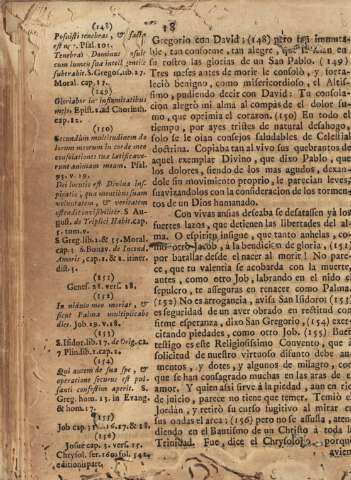 18
(148)
Posuisti tenebras, & facta
est nox. Psal. 103.
Tenebras Dominus
cum lumen suæ intelligentiæ
subtrahit. S. Gregor. lib. 27.
Moral. cap. 17.
(149)
Gloriabor in infirmitatibus
meis. Epist. 2. ad Chorinth.
cap. 12.
(150)
Secundùm multitudinem do-
lorum meorum in corde meo
consolationes tuæ lætificave-
runt animam meam. Psal.
93. v. 19.
Dei locutio est Divina ins-
piratio, qua mentibus suam
voluntatem, & veritatem
ostendit invisibiliter. S. Au-
gust. de Triplici Habit. cap.
5. tum. 9.
S. Greg. lib. 2. & 35. Moral.
cap. S. Bonav. de Incend.
Amoris, cap. 2. & 2. itiner.
dist. 3.
(151)
Genes. 28. vers. 28.
(152)
In nidulo meo moriar, &
sicut Palma multiplicabo
dies. Job 29. v. 18.
(153)
S. Isidor. lib. 17. de Orig. ca.
7 Plin. lib. 1. cap. 2.
(154)
Qui autem de sua spe, &
operatione securus est pul-
santi confestim aperit. S.
Greg. hom. 13. in Evang.
& hom. 17.
(155)
Job cap. 31. 16. 27. & 28.
(156)
Josue cap. 3. vers. 15.
Chrysol. ser. 160. fol. 342.
edition. part.
Gregorio con David: (148) pero tan immuta-
ble, tan conforme, tan alegre, que se leían en
su rostro las glorias de un San Pablo. (149)
Tres meses antes de morir le consolò, y forta-
leciò benigno, como misericordioso, el Altis-
simo, pudiendo decir con David: Tu consola-
cion alegrò mi alma al compás de el dolor su-
mo, que oprimia el corazon. (150) En todo el
tiempo, por ayes tristes de natural desahogo,
solo se le oían consejos saludables de Celestial
doctrina. Copiaba tan al vivo sus quebrantos de
aquel exemplar Divino, que dixo Pablo, que
los dolores, siendo de los mas agudos, dexan-
dole sin movimiento proprio, le parecian leves,
suavizandolos con la consideracion de los tormen-
tos de un Dios humanado.
Con vivas ansias deseaba se desatassen yà los
fuertes lazos, que detienen las libertades del al-
ma. O espiritu insigne, que tanto anhelas, co-
mo otro Jacob, à la bendicion de gloria, (151)
por batallar desde el nacer al morir! No pare-
ce, que tu valentia se acobarda con la muerte,
antes, como otro Job, labrando en el nido el
sepulcro, te asseguras de renacer como Palma.
(152) No es arrogancia, avisa San Isidoro, (153)
es seguridad de un aver obrado en restitud con
firme esperanza, dixo San Gregorio, (154) exer-
citando piedades, como otro Job. (155) Buen
testigo es este Religiosissimo Convento, que à
solicitud de nuestro virtuoso difunto debe au-
mentos, y dotes, y algunos de milagro, con
que se han consagrado muchas en las aras de el
amor. Y quien assi sirve à la piedad, aun en tie
de juicio, parece no tiene que temer. Temiò el
Jordàn, y retirò su curso fugitivo al mirar en
sus ondas el arca; (156) pero no se assusta, aten-
diendo en el Bautismo de un Christo à toda la
Trinidad. Fue, dice el Chrysologo, porque
avien-